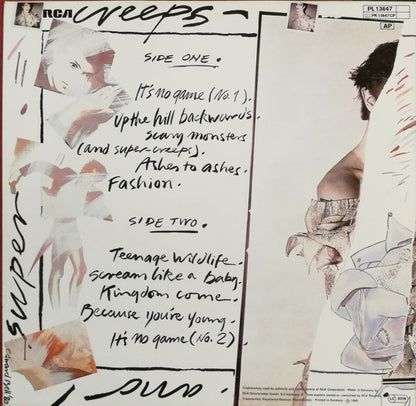 RCA
creeps
PL 13647
PK 13647 CP
AP
SIDE ONE.
It's no game (No. 1).
up the hill backwards.
scary monsters
(and super-creeps).
Ashes to ashes.
Fashion.
SIDE TWO.
Teenage wildlife.
scream like a baby.
Kingdom come.
Because you're young.
It's no game (No. 2)
super
and
Edward Bell '80